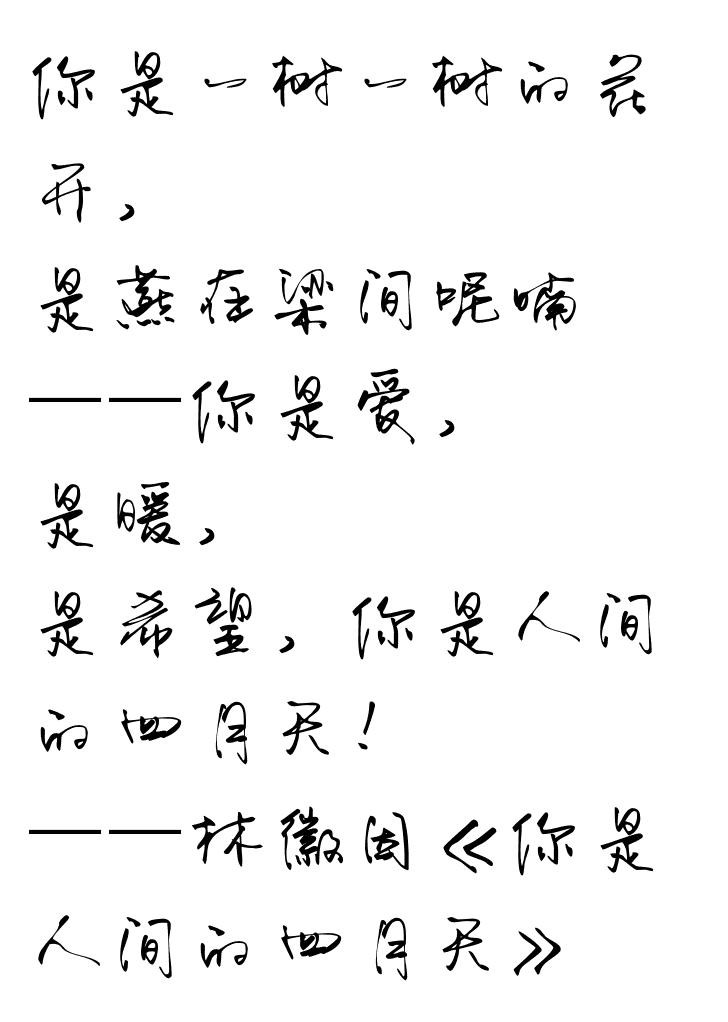 你是一树一树的花
开，
是燕在梁间呢喃
——你是爱，
是暖，
是希望，你是人间
的四月天！
——林徽因《你是
人间的四月天》